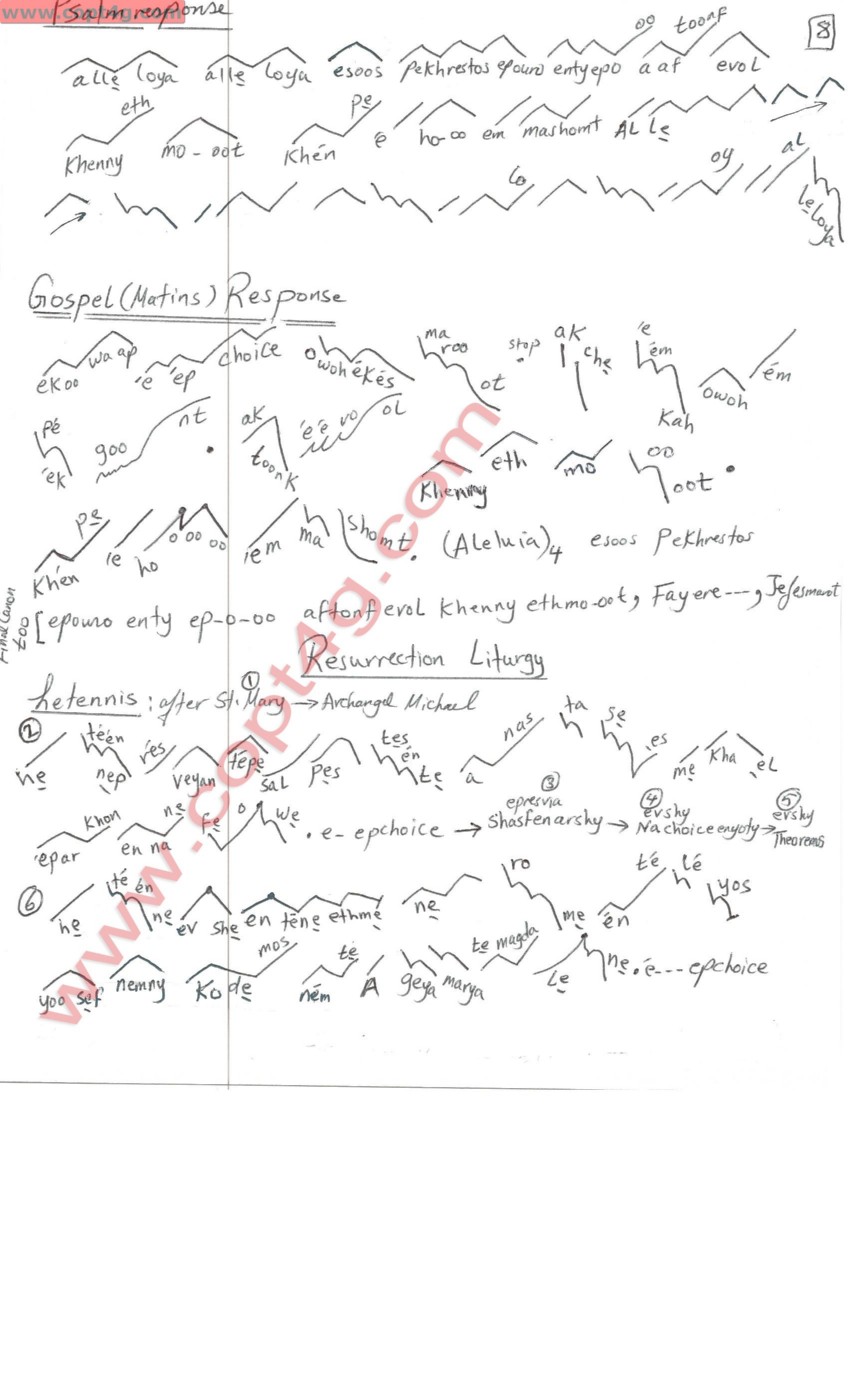 Psalm response
www.copt4g.com
8
oo toonf
allē loya allē loya esoos pekhrestos epouro entyepo a af evol
eth pē
Khenny mo-oot Khén é ho-oo em mashomt ALLē
lo oy al
lēloya
Gospel (Matins) Response
ékoo waap 'e 'ép choice owoh ékés ma roo ot stop ak chē 'e ém Kah owoh ém
pé 'ek goo nt . ak toonk 'é é vo ol Khenny eth mo oo oot .
Khén pē 'e ho o oo oo iem ma shomt. (Aleluia)4 esoos Pekhrestos
Final Canon too [epouro enty ep-o-oo aftonf evol Khenny ethmo-oot, Fayere---, Jefesmarot
Resurrection Liturgy
hetennis : after St. Mary ① → Archangel Michael
② hē téén nep rés veyan tépe sal pes tes én tē a nas ta sē es mē Kha el
'epar Khon en na nē fē o wē . e- epchoice → ③ epresvia Shasfenarshy → ④ evshy Nachoiceenyoty → ⑤ evshy Theorems
⑥ hē té én nē ev shē en tēnē ethmē nē ro mē én té lé yos
yoo sēf nemny Ko dē mos ném tē A geya marya tē magda Lē nē . é--- epchoice
www.copt4g.com